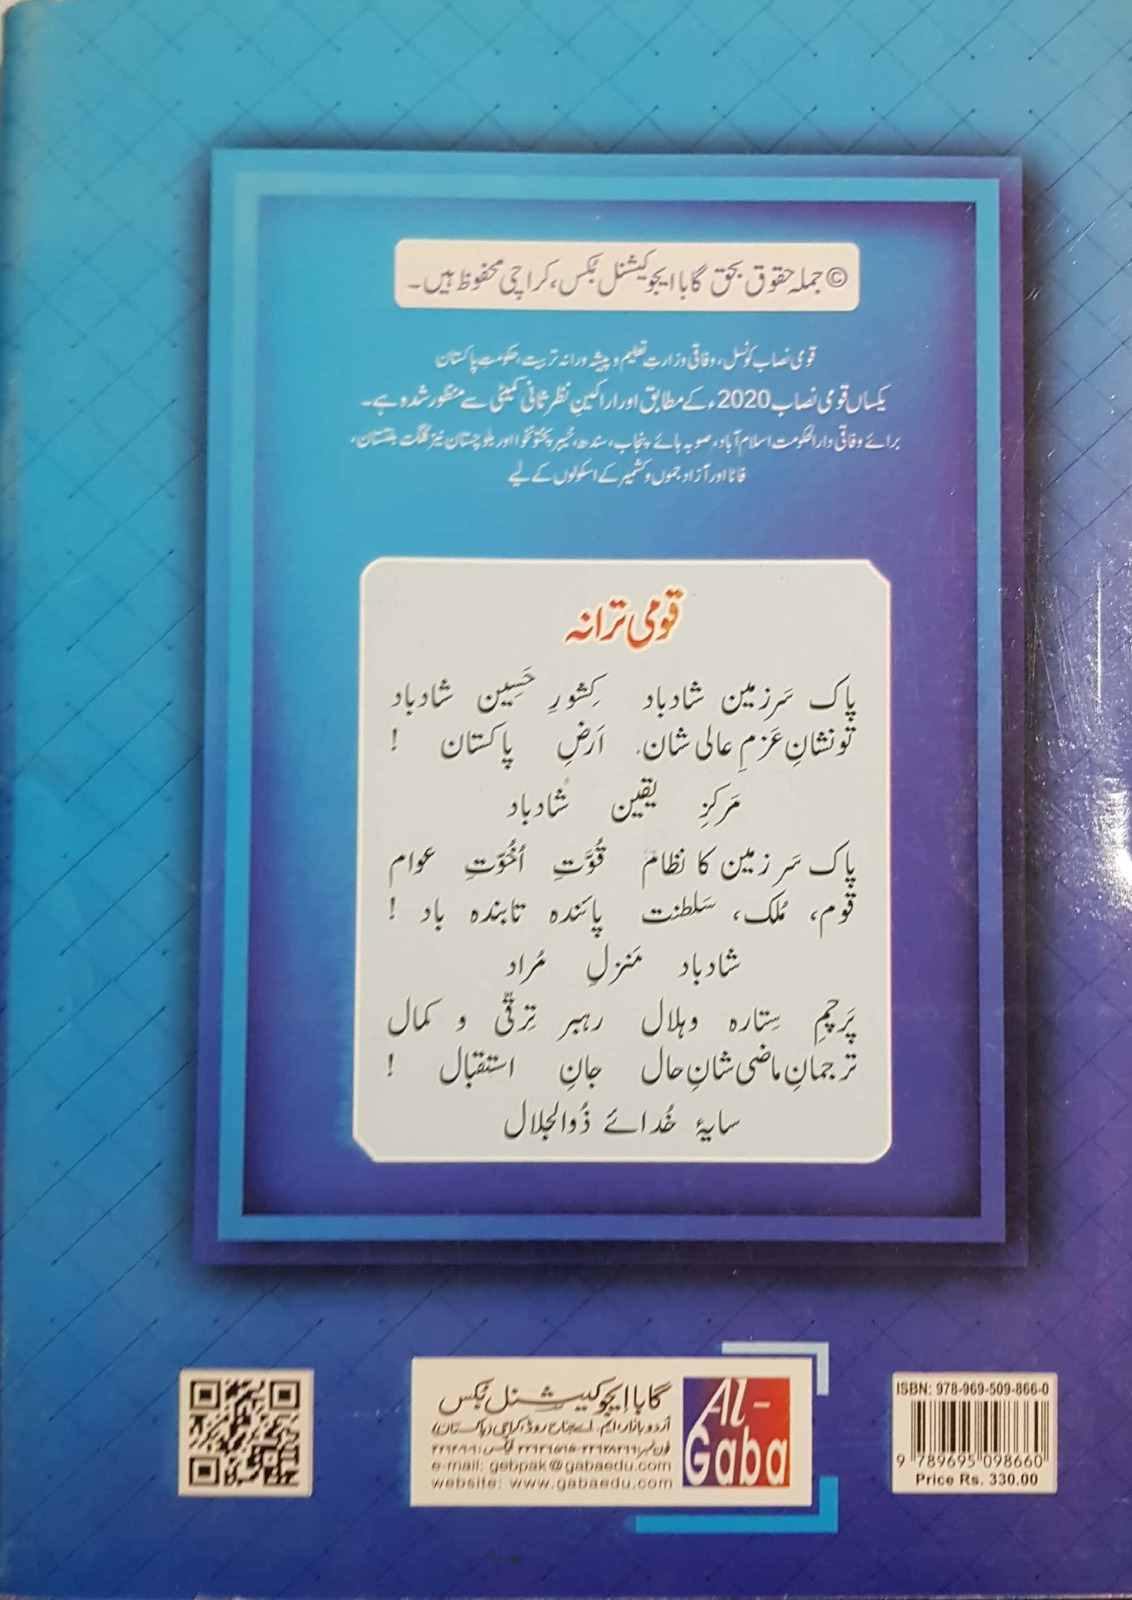 © جملہ حقوق بحق گابا ایجوکیشنل بکس، کراچی محفوظ ہیں۔
قومی نصاب کونسل، وفاقی وزارتِ تعلیم و پیشہ ورانہ تربیت، حکومتِ پاکستان
یکساں قومی نصاب 2020ء کے مطابق اور اراکینِ نظرثانی کمیٹی سے منظور شدہ ہے۔
برائے وفاقی دارالحکومت اسلام آباد، صوبہ ہائے پنجاب، سندھ، خیبر پختونخوا اور بلوچستان نیز گلگت بلتستان،
فاٹا اور آزاد جموں و کشمیر کے اسکولوں کے لیے
قومی ترانہ
پاک سَرزمین شادباد کِشورِ حَسِین شادباد
تو نشانِ عَزمِ عالی شان۔ اَرضِ پاکستان !
مَرکزِ یقین شادباد
پاک سَرزمین کا نظام قُوَّتِ اُخُوّتِ عوام
قوم، مُلک، سَلطنت پائندہ تابندہ باد !
شادباد مَنزلِ مُراد
پَرچمِ سِتارہ وہلال رہبرِ تِرقّی و کمال
ترجمانِ ماضی شانِ حال جانِ استقبال !
سایۂ خُدائے ذُوالجلال
گابا ایجوکیشنل بکس
اُردو بازار، ایم۔ اے جناح روڈ، کراچی (پاکستان)
e-mail: gebpak@gabaedu.com
website: www.gabaedu.com
Al-
Gaba
ISBN: 978-969-509-866-0
9 789695 098660
Price Rs. 330.00